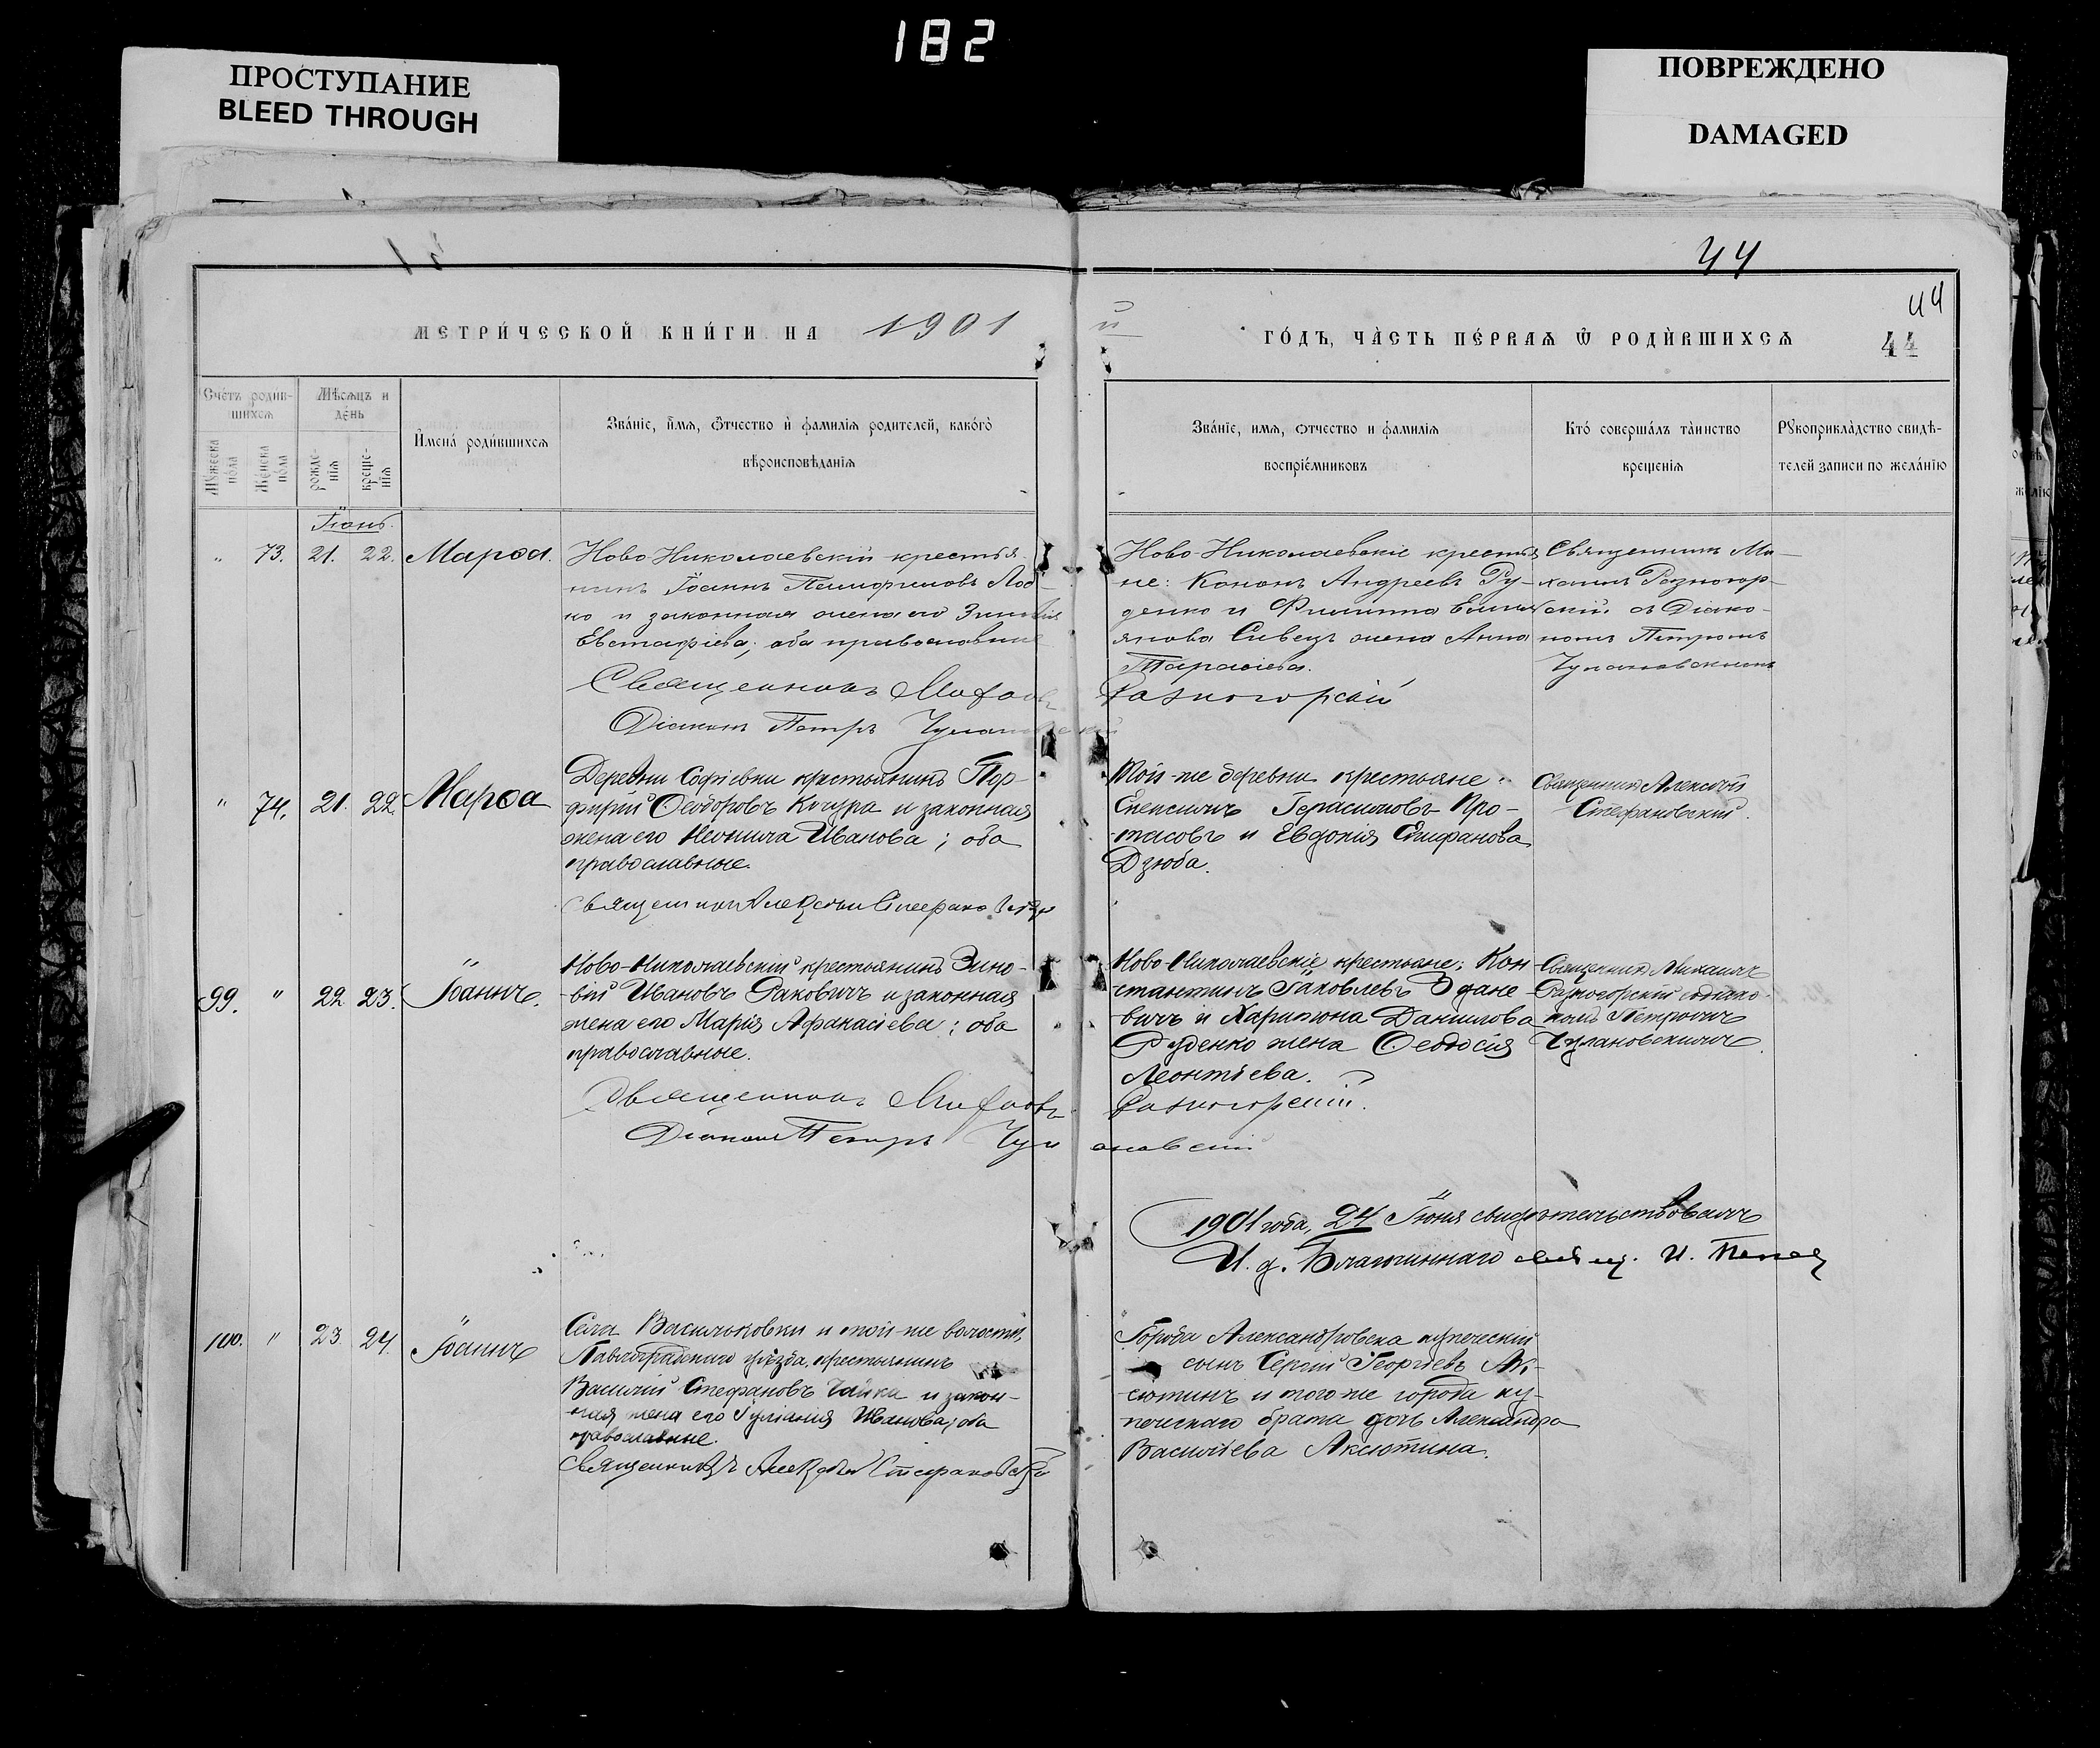 182
ПРОСТУПАНИЕ
BLEED THROUGH
ПОВРЕЖДЕНО
DAMAGED
44
44
44
МЕТРИ́ЧЕСКОЙ КНИ́ГИ НА 1901
й ГО́ДЪ, ЧА̀СТЬ ПЕ́РВАѦ Ѿ РОДЍВШИХСѦ
Сче́тъ роди́в-
шихсѧ
Мѣ́сѧцъ и
де́нь
Мꙋ́жеска
по́ла
Же́нска
по́ла
рожде-
нїѧ
креще-
нїѧ
И҆мена́ роди́вшихсѧ
Зва́нїе, и҆́мѧ, ѻ҆́тчество и҆ фамилїѧ родителей, како́гѡ
вѣроисповѣ́данїѧ
Зва́нїе, имѧ, ѻтчество и фамилїѧ
воспрїе́мниковъ
Кто́ соверша́лъ та̀инство
креще́нїѧ
Рꙋкоприкла̀дство свидѣ́-
телей записи по жела́нїю
Іюнь.
" 73. 21. 22. Марѳа.
Ново-Николаевскій крестья-
нинъ Іоаннъ
но и законная жена его
Евстафіева; оба православные
Священникъ Михаилъ Разногорскій
Діаконъ Петръ
Ново-Николаевскіе крестья
не: Кононъ Андреевъ Ру-
денко и Филиппа
янова Сивецъ жена Анна
Тарасіева.
Священникъ Ми-
хаилъ Разногор-
скій съ Діако-
номъ Петромъ
Чулановскимъ
" 74. 21. 22. Марѳа
Деревни Софіевки крестьянинъ Пор-
фирій Ѳеодоровъ Кочура и законная
жена его Неонила Иванова; оба
православные.
Священникъ Алексѣй Стефановскій
Той-же деревни крестьяне:
Герасимовъ Про-
тасовъ и Евдокія Епифанова
Дзюба.
Священникъ Алексѣй
Стефановскій.
99. " 22 23. Іоаннъ.
Ново-Николаевскій крестьянинъ Зино-
вій Ивановъ Раковичъ и законная
жена его Марія Афанасіева; оба
православные.
Священникъ Михаилъ Разногорскій.
Діаконъ Петръ Чулановскій
Ново-Николаевскіе крестьяне: Кон-
стантинъ Іаковлевъ Здане-
вичъ и Харитона Данилова
Руденко жена Ѳеодосія
Леонтіева.
Священникъ Михаилъ
Разногорскій съ Діако-
номъ Петромъ
Чулановскимъ.
1901 года, 24 Іюня свидѣтельствовалъ
И. д. Благочиннаго свящ. И. Попов
100. " 23 24. Іоаннъ
Села Васильковки и той-же волости
Павлоградскаго уѣзда, крестьянинъ
Василій Стефановъ Чайка и закон-
ная жена его Іуліанія Иванова; оба
православные.
Священникъ Алексѣй Стефановскій
Города Александровска купеческій
сынъ Сергій Георгіевъ Ак-
сютинъ и того-же города ку-
печескаго брата дочь Александра
Васильева Аксютина.